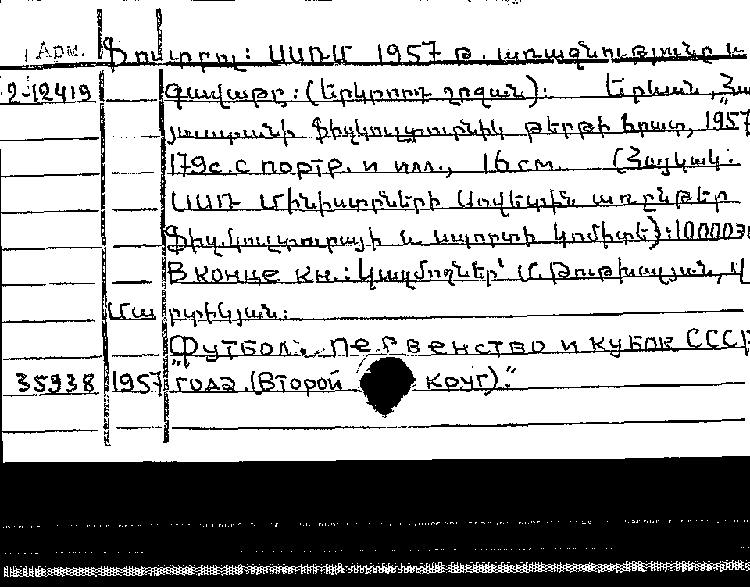 Арм. Ֆուտբոլ: ՍՍՌՄ 1957 թ. առաջնությանը և
2-12419 գավաթը: (Երկրորդ շրջան): Երևան, Հա
յաստանի Ֆիզկուլտուրնիկ թերթի հրատ, 1957
179с. с портр. и илл., 16 см. (Հայկակ:
ՍՍՌ Մինիստրների Սովետին առընթեր
Ֆիզ.կուլտուրայի և սպորտի կոմիտե): 10000
В конце кн.: Կազմողներ՝ Մ.
Մարտիկյան:
"Футбол. Первенство и кубок СССР
35938 1957 года. (Второй круг)."